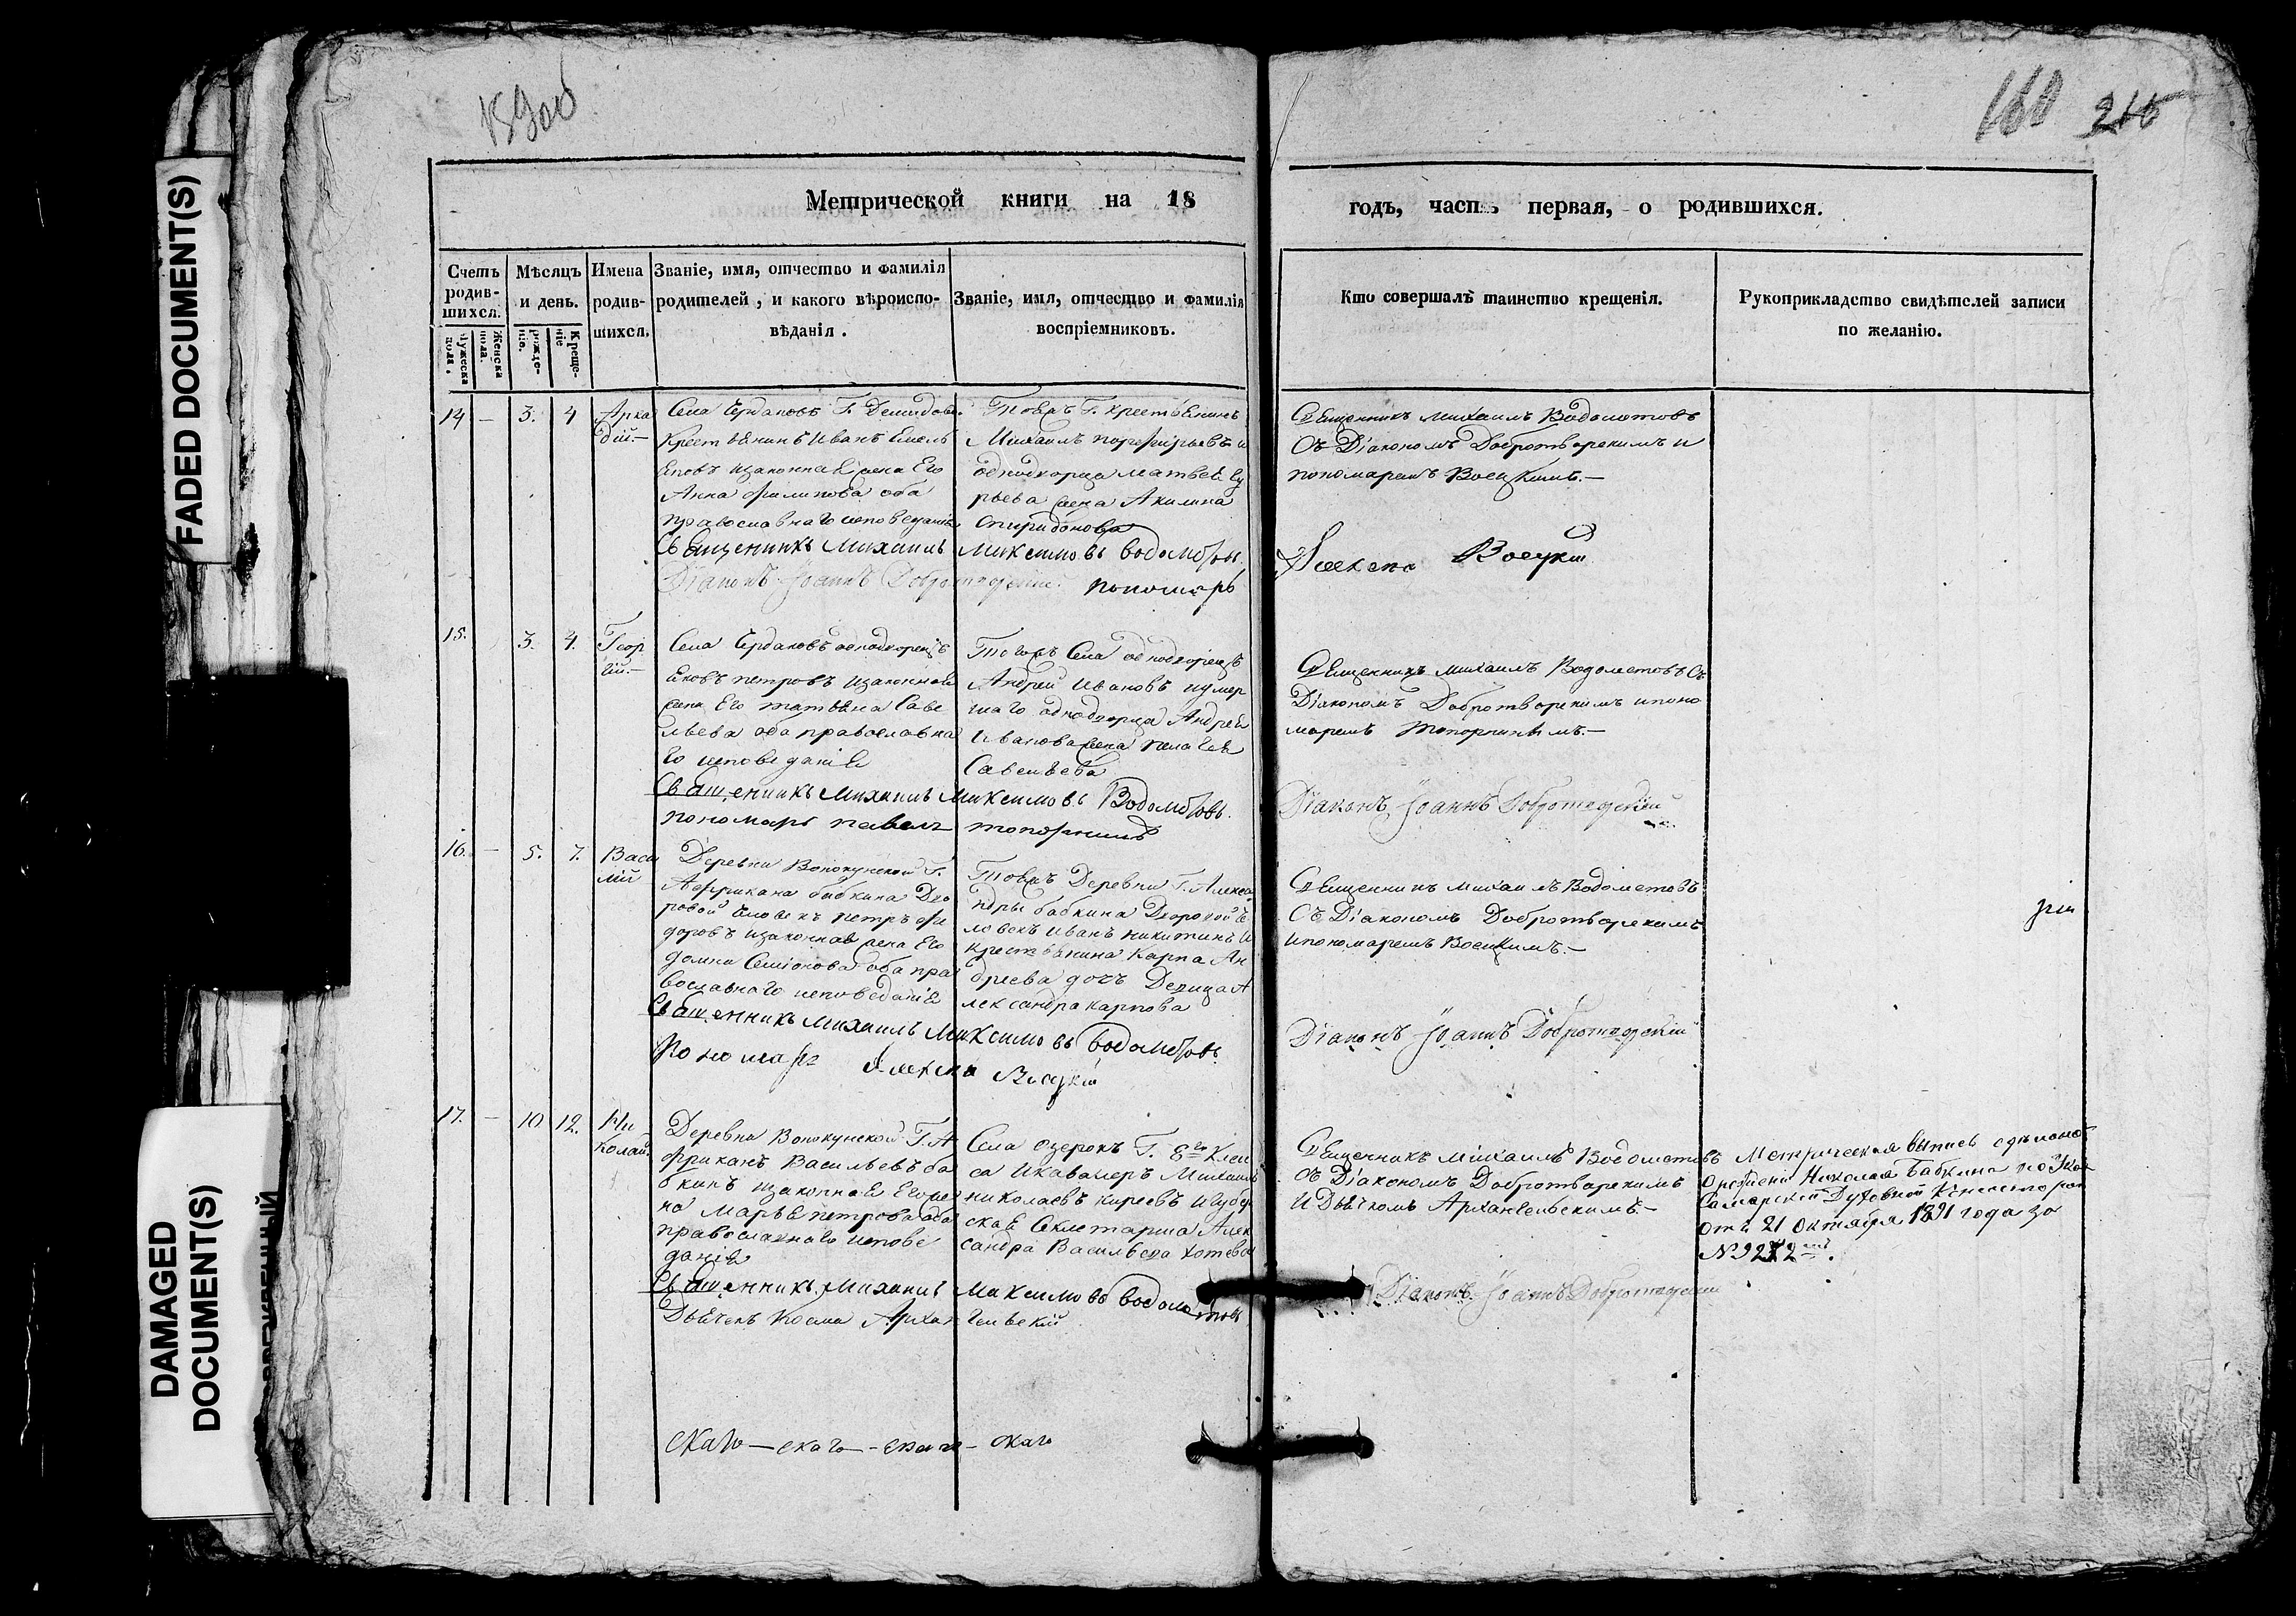 FADED DOCUMENT(S)
DAMAGED DOCUMENT(S)
160 216
Метрической книги на 18 годъ, часть первая, о родившихся.
Счетъ родив-шихся.
Мужеска пола.
Женска пола.
Мѣсяцъ и день.
рожде-нія.
Креще-ніе
Имена родив-шихся.
Званіе, имя, отчество и фамилія родителей, и какого вѣроиспо-вѣданія.
Званіе, имя, отчество и фамилія воспріемниковъ.
Кто совершалъ таинство крещенія.
Рукоприкладство свидѣтелей записи по желанію.
14 — 3. 4 Арка
дій.—
Села Чердаковъ Г. Демидова
Крестьянинъ Иванъ Емель
яновъ изаконная жена Его
Анна филипова оба
православнаго исповеданія
Тогожъ Г. крестьянинъ
Михаилъ порфирьевъ и
однодворца матвея
жена Акилина
спиридонова
Священникъ михаилъ Водометовъ
Съ Діакономъ Добротворскимъ и
пономаремъ Восцкимъ.—
Священникъ Михаилъ Максимовъ Водометовъ
Діаконъ Іоаннъ Добротворскій пономарь
Алексей Восцкій
15. 3. 4. Геор
гій.—
Села Чердаковъ однодворецъ
Яковъ петровъ изаконная
жена Его татьяна Саве
льева оба православна
го исповеданія
Тогожъ Села однодворецъ
Андрей Ивановъ иумер
шаго однодворца Андрея
Иванова жена пелагея
Савельева
Священникъ михаилъ Водометовъ Съ
Діакономъ Добротворскимъ ипоно
маремъ топорнинымъ.—
Священникъ Михаилъ Максимовъ Водометовъ.
пономарь павелъ топорнинъ
Діаконъ Іоаннъ Добротворскій
16. — 5. 7. Васи
лій
Деревни Вопокунской Г.
Африкана бабкина Дво
ровой человекъ петръ фи
доровъ изаконная жена Его
домна Семіонова оба пра
вославнаго исповеданія
Тогожъ Деревни Г. Алекса
ндры бабкина Дворовой че
ловекъ Иванъ никитинъ И
крестьянина Карпа Ан
дреева дочъ Девица А
лександра карпова
Священникъ михаилъ Водометовъ
Съ Діакономъ Добротворскимъ
ипономаремъ Восцкимъ.—
Священникъ Михаилъ Максимовъ Водометовъ
Пономарь Алексей Восцкій
Діаконъ Іоаннъ Добротворскій
17. — 10 12. Ни
колай.
Деревни Вопокунской Г. А
фриканъ Васильевъ ба
бкинъ изаконная Его же
на марья петрова оба
православнаго испове
данія
Села озерокъ Г. 8го Клас
са Икавалеръ Михаилъ
николаевъ киреевъ Игубер
ская Секлетарша Алек
сандра Васильева
Священникъ михаилъ Водометовъ
съ Діакономъ Добротворскимъ
И Дьячкомъ Архангельскимъ.—
Метрическая выпись сдѣлана
о рожденіи Николая Бабкина по Указу
Самарской Духовной Консисторіи
отъ 21 Октября 1891 года за
№ 9272.
Священникъ Михаилъ Максимовъ Водометовъ
Дьячекъ Косма Архангельскій
Діаконъ Іоаннъ Добротворскій
скаго — скаго — скаго — скаго